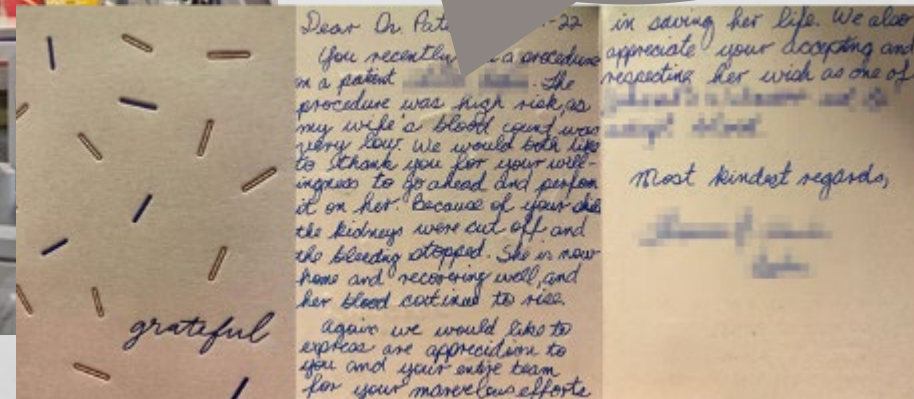 grateful
Dear Dr. Pate -22
You recently a procedure
on a patient . The
procedure was high risk, as
my wife's blood count was
very low. We would both like
to thank you for your will-
ingness to go ahead and perform
it on her. Because of your
the kidneys were cut off and
the bleeding stopped. She is now
home and recovering well, and
her blood continues to rise.
Again we would like to
express are apprecidtion to
you and your entire team
for your marvelous efforts
in saving her life. We also
appreciate your accepting and
respecting her wish as one of
Most kindest regards,